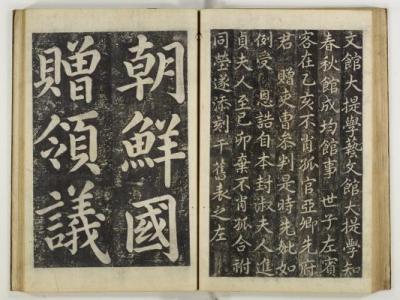 文館大提學藝文館大提學知
春秋館成均館事 世子左賓
客在乙亥不肖孤官亞卿先府
君 贈吏曹參判是時先妣如
例受 恩誥自本封淑夫人進
貞夫人至己卯棄不肖孤合祔
同塋遂添刻于舊表之左
朝鮮國
贈領議